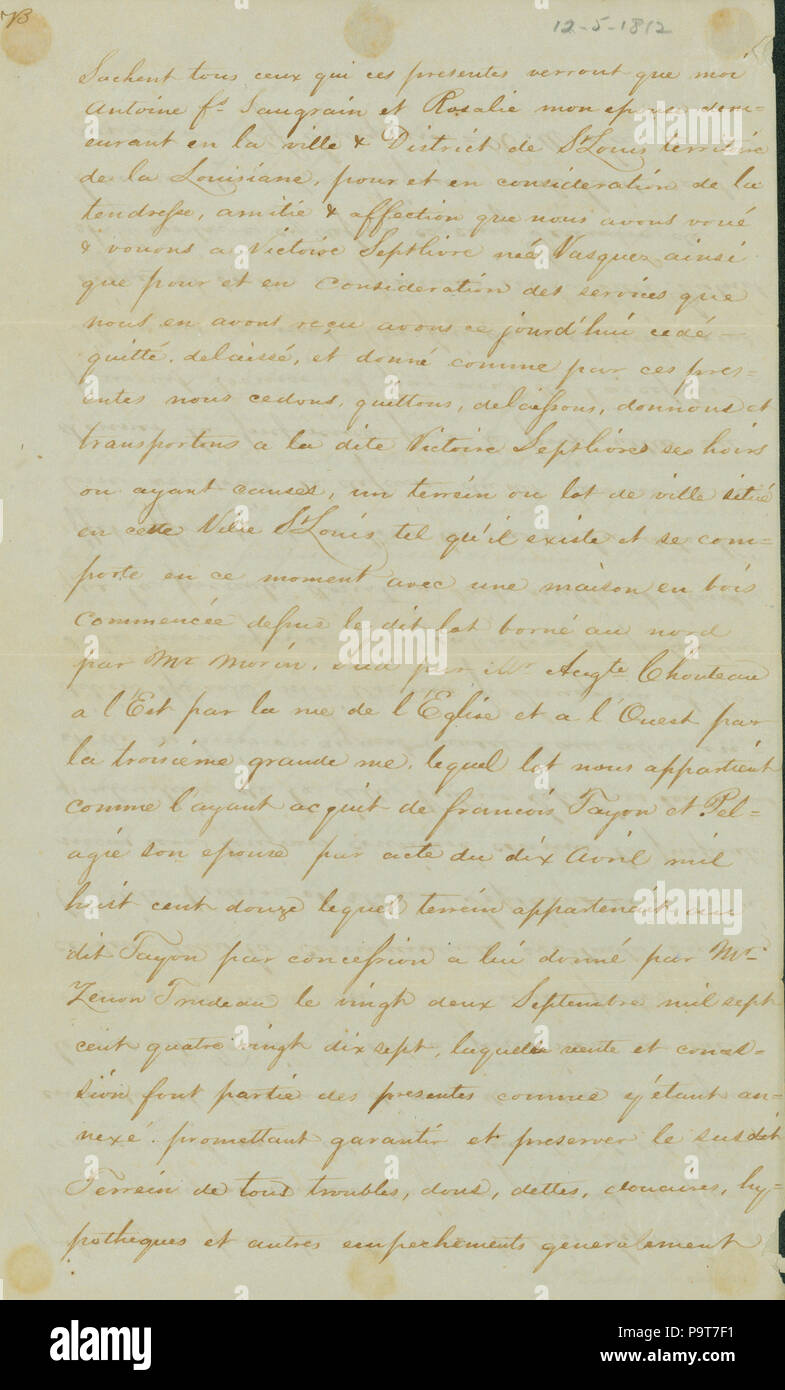 B
12-5-1812
Sachent tous ceux qui ces presentes verront que moi
Antoine fs Saugrain et Rosalie mon epouse dem=
eurant en la ville & District de St Louis territoire
de la Louisiane, pour et en consideration de la
tendresse, amitié & affection que nous avons voué
& vouons a Victoire Septlivre née Vasquez ainsi
que pour et en consideration des services que
nous en avons reçu avons ce jourd'hui cedé -
quitté, delaissé, et donné comme par ces pres=
entes nous cedons, quittons, delaissons, donnons et
transportons a la dite Victoire Septlivres ses hoirs
ou ayant causes, un terrein ou lot de ville situé
en cette Ville St Louis tel qu'il existe et se com=
porte en ce moment avec une maison en bois
commencée dessus le dit lot borné au nord
par Mr Morin, Sud par Mr Augte Chouteau
a l'Est par la rue de l'Eglise et a l'Ouest par
la troisieme grande rue, lequel lot nous appartient
comme l'ayant acquit de francois Tayon et Pel=
agie son epouse par acte du dix Avril mil
huit cent douze lequel terrein appartenait au
dit Tayon par concession a lui donné par Mr
Zenon Trudeau le vingt deux Septembre mil sept
cent quatre vingt dix sept, laquelle vente et conces=
sion font partie des presentes comme y étant an=
nexé. promettant garantir et preserver le susdit
Terrein de tous troubles, dons, dettes, douaires, hy=
potheques et autres empechements generalement
alamy
alamy
Image ID: P9T7F1
www.alamy.com